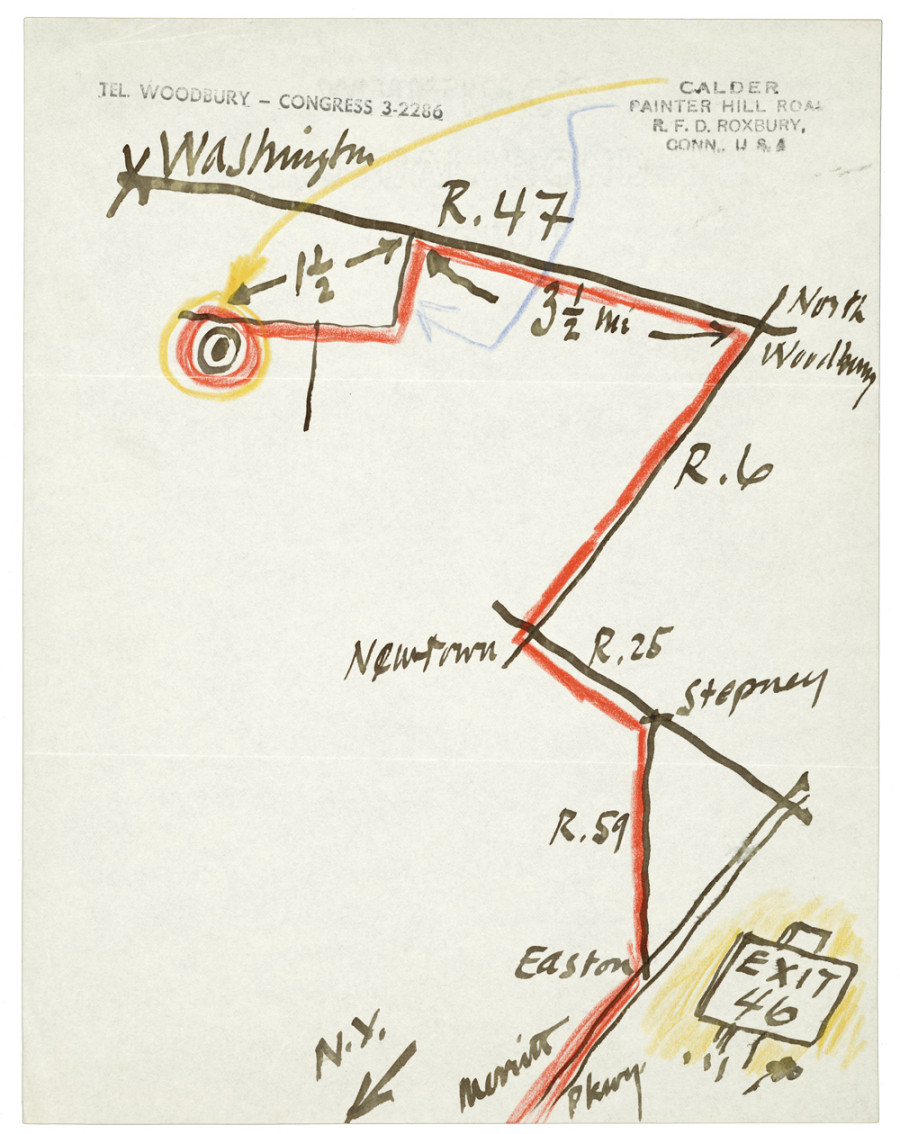 TEL. WOODBURY – CONGRESS 3-2286
CALDER
PAINTER HILL ROAD
R. F. D. ROXBURY,
CONN., U S A
Washington
R. 47
1 1/2
3 1/2 mi
North
Woodbury
R. 6
Newtown
R. 25
Stepney
R. 59
Easton
EXIT
46
N.Y.
Merritt
Pkwy